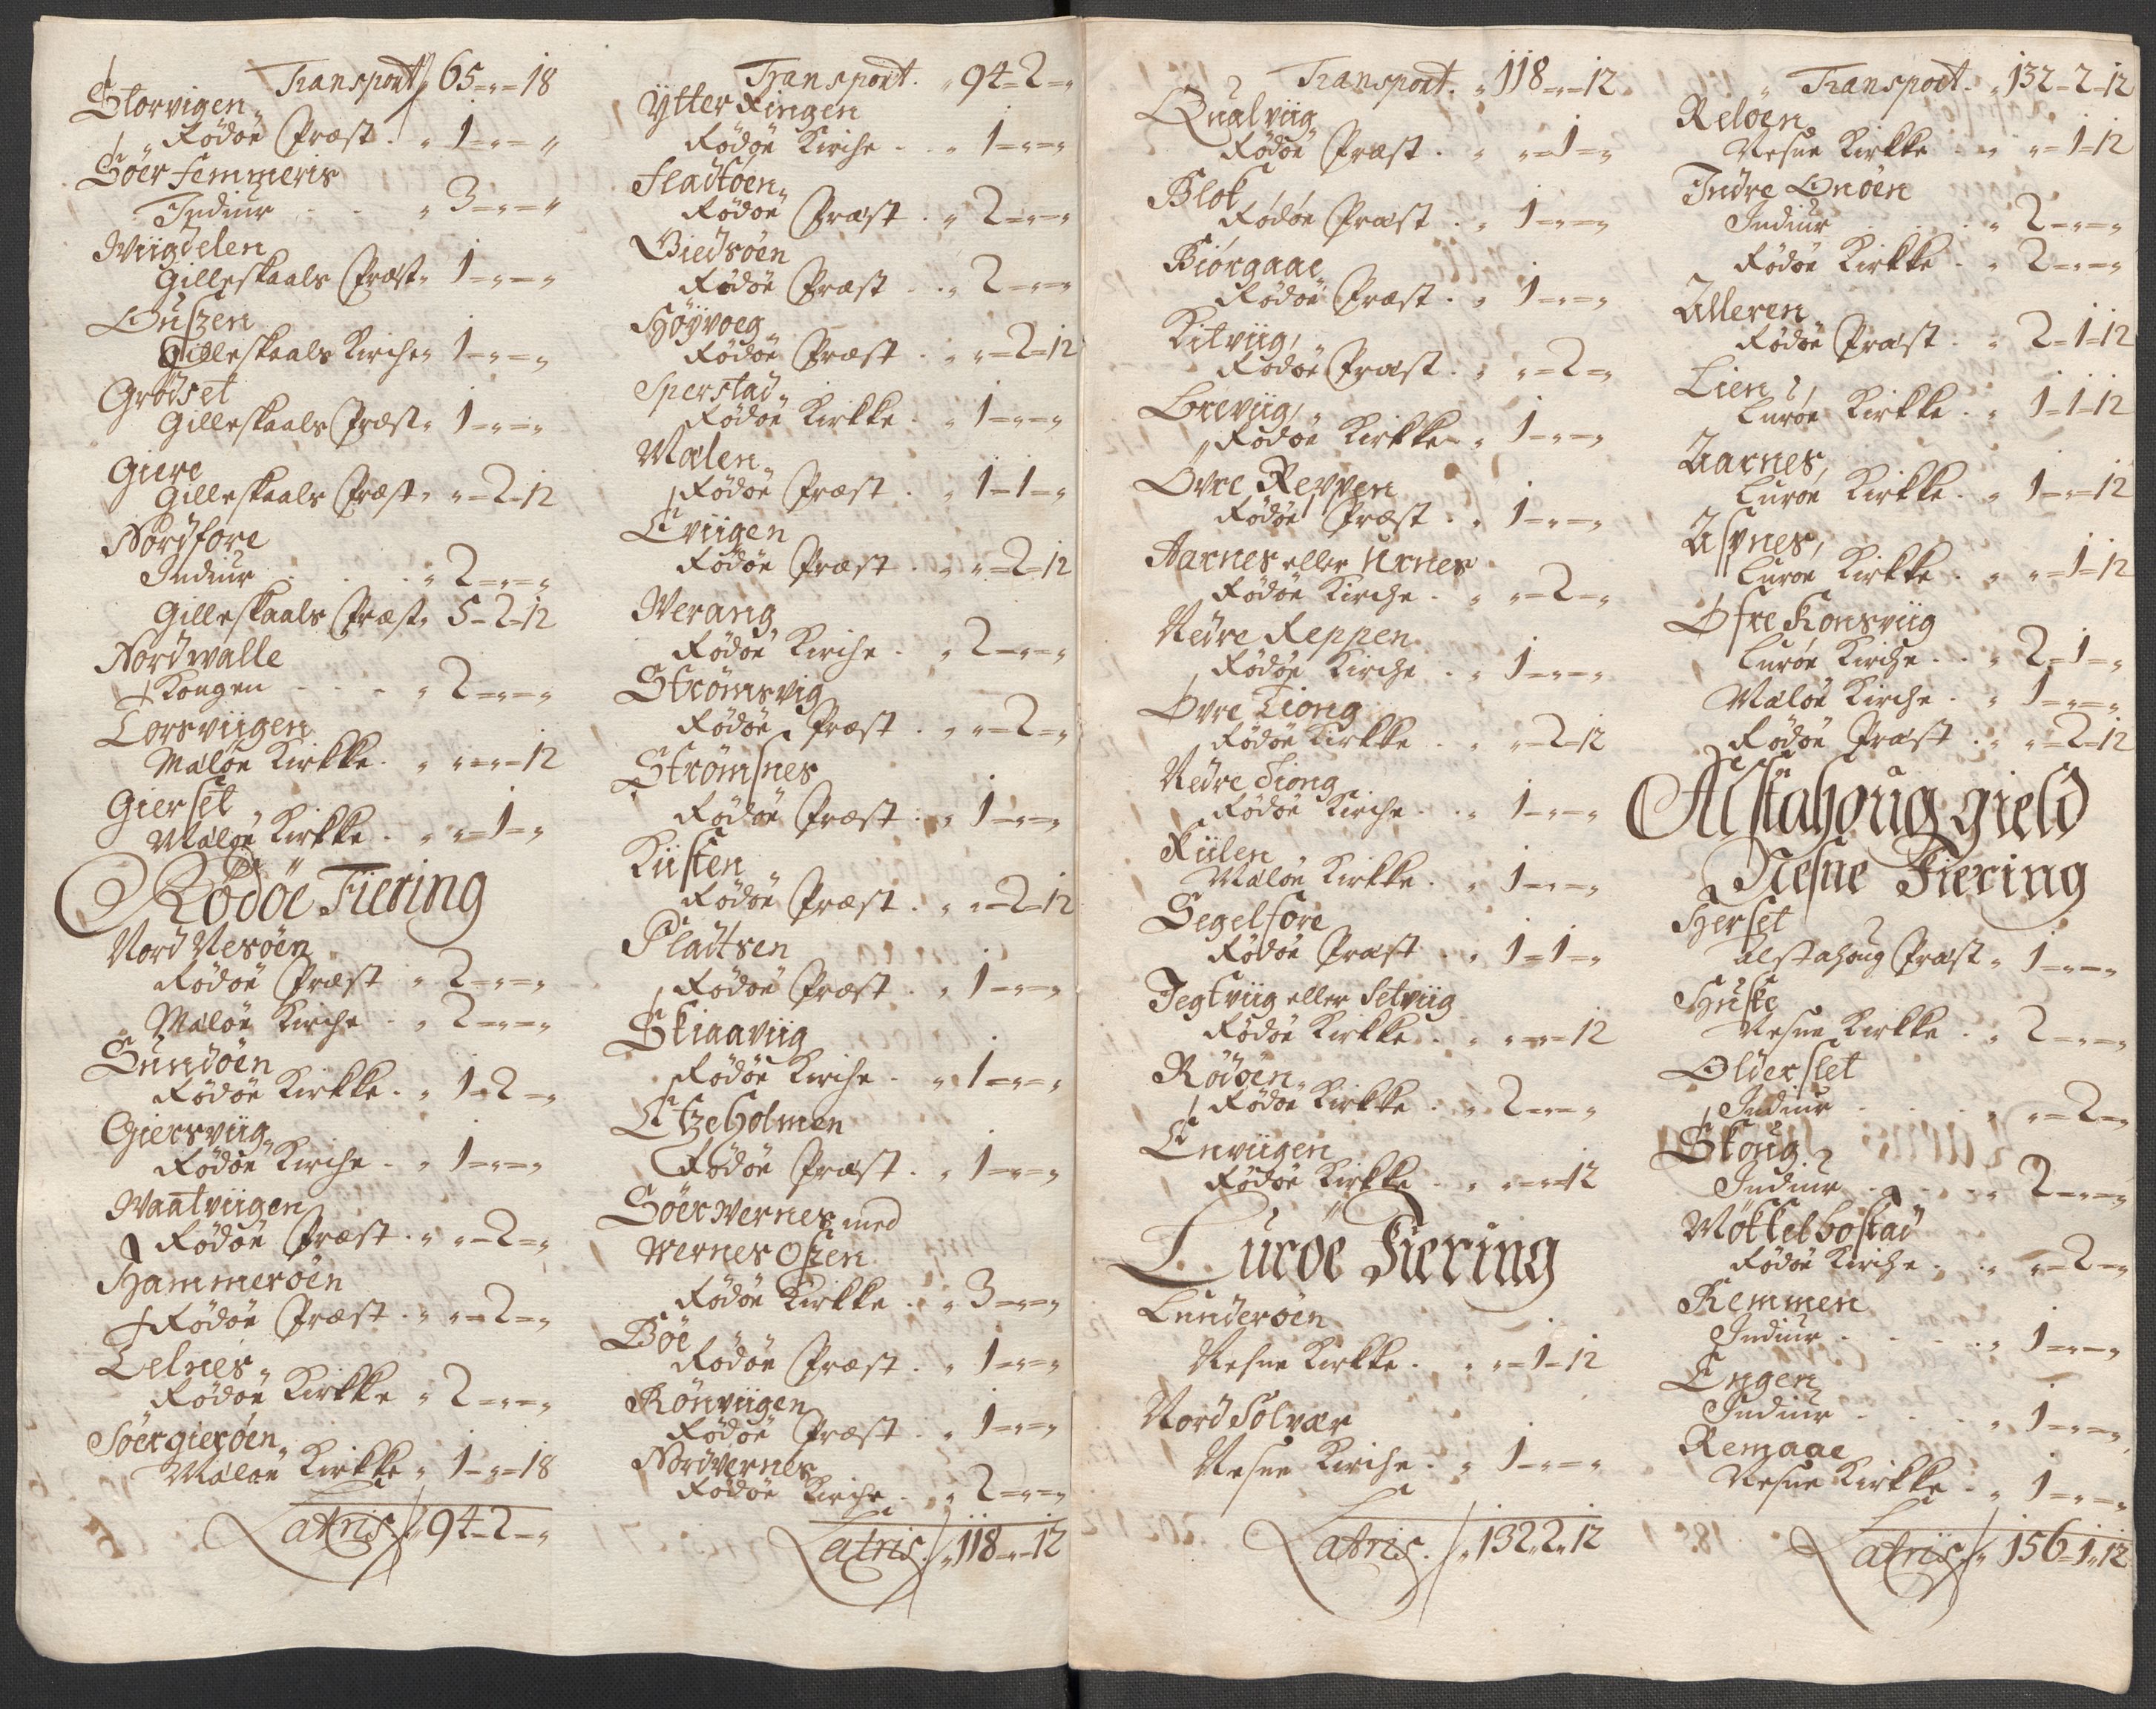 Transport 65-"-18
Storvigen
Rödöe Præst. " 1-"-"
Söer femmeris
Indiur " 3-"-"
Wiigdelen
Gilleskaals Præst " 1-"-"
Ouszen
Gilleskaals Kirche " 1-"-"
Grödset
Gilleskaals Præst " 1-"-"
Giere
Gilleskaals Præst " "-2-12
Nordfore
Indiur " 2-"-"
Gilleskaals Præst " 5-2-12
Nordwalle
Kongen " 2-"-"
Torsviigen
Maløe Kirkke. " "-"-12
Gierset
Maløe Kirkke. " "-1-"
Rödöe Fiering
Nord Nesöen
Rödöe Præst " 2-"-"
Maløe Kirche " 2-"-"
Sundöen
Rödöe Kirkke. " 1-2-"
Giersviig
Rödöe Kirche " 1-"-"
Wantviigen
Rödöe Præst. " "-2-"
Hammeröen
Rödöe Præst. " "-2-"
Telnes
Rödöe Kirkke " 2-"-"
Söergieröen
Maløe Kirkke " 1-"-18
Latris " 94-2-"
Transport. " 94-2-"
Ytter Ringen
Rödöe Kirche " 1-"-"
Fladtöen
Rödöe Præst " 2-"-"
Giedsöen
Rödöe Præst " 2-"-"
Höyvoeg
Rödöe Præst " "-2-12
Sperstad
Rödöe Kirkke " 1-"-"
Walen
Rödöe Præst " 1-1-"
Eviigen
Rödöe Præst " "-2-12
Werang
Rödöe Kirche " 2-"-"
Strömsvig
Rödöe Præst " "-2-"
Strömsnes
Rödöe Præst " 1-"-"
Kiisten
Rödöe Præst " "-2-12
Pladtsen
Rödöe Præst " 1-"-"
Skiaaviig
Rödöe Kirche " 1-"-"
Etzeholmen
Rödöe Præst " 1-"-"
Söer Wernes med
Wernes Oszen
Rödöe Kirkke " 3-"-"
Böe
Rödöe Præst " 1-"-"
Rönviigen
Rödöe Præst " 1-"-"
Nordvernes
Rödöe Kirche " 2-"-"
Latris " 118-"-12
Transport. " 118-"-12
Qualviig
Rödöe Præst " "-1-"
Blok
Rödöe Præst " 1-"-"
Biörgaae
Rödöe Præst " 1-"-"
Kitviig
Rödöe Præst " "-2-"
Breviig
Rödöe Kirkke " 1-"-"
Övre Reppen
Rödöe Præst " 1-"-"
Aarnes eller Urnes
Rödöe Kirche " "-2-"
Nedre Reppen
Rödöe Kirche " 1-"-"
Övre Tiong
Rödöe Kirkke " "-2-12
Nedre Tiong
Rödöe Kirche " 1-"-"
Kiilen
Maløe Kirkke " 1-"-"
Segelfore
Rödöe Præst " 1-1-"
Jegtviig eller Setviig
Rödöe Kirkke " "-"-12
Rödöen
Rödöe Kirkke " 2-"-"
Enviigen
Rödöe Kirkke " "-"-12
Luröe Fiering
Lunderöen
Nesne Kirkke " "-1-12
Nord Solvær
Nesne Kirche " 1-"-"
Latris. " 132"2"12
Transport. " 132-2-12
Reloen
Nesne Kirkke " "-1-12
Indre Onöen
Indiur " 2-"-"
Rödöe Kirkke " 2-"-"
Alleren
Rödöe Præst " 2-1-12
Lien
Luröe Kirkke " 1-1-12
Aarnes
Luröe Kirkke " 1-"-12
Aspnes
Luröe Kirkke " "-1-12
Öfre Konsviig
Luröe Kirche " 2-1-"
Maløe Kirche " 1-"-"
Rödöe Præst " "-2-12
Alstahoug gield
Nesne Fiering
Herset
Alstahoug Præst " 1-"-"
Huske
Nesne Kirkke " 2-"-"
Olderslet
Indiur " "-2-"
Skoug
Indiur " 2-"-"
Möckelbostad
Rödöe Kirche " "-2-"
Remmen
Indiur " 1-"-"
Engen
Indiur " 1-"-"
Remaae
Nesne Kirkke " 1-"-"
Latris " 156-1-12